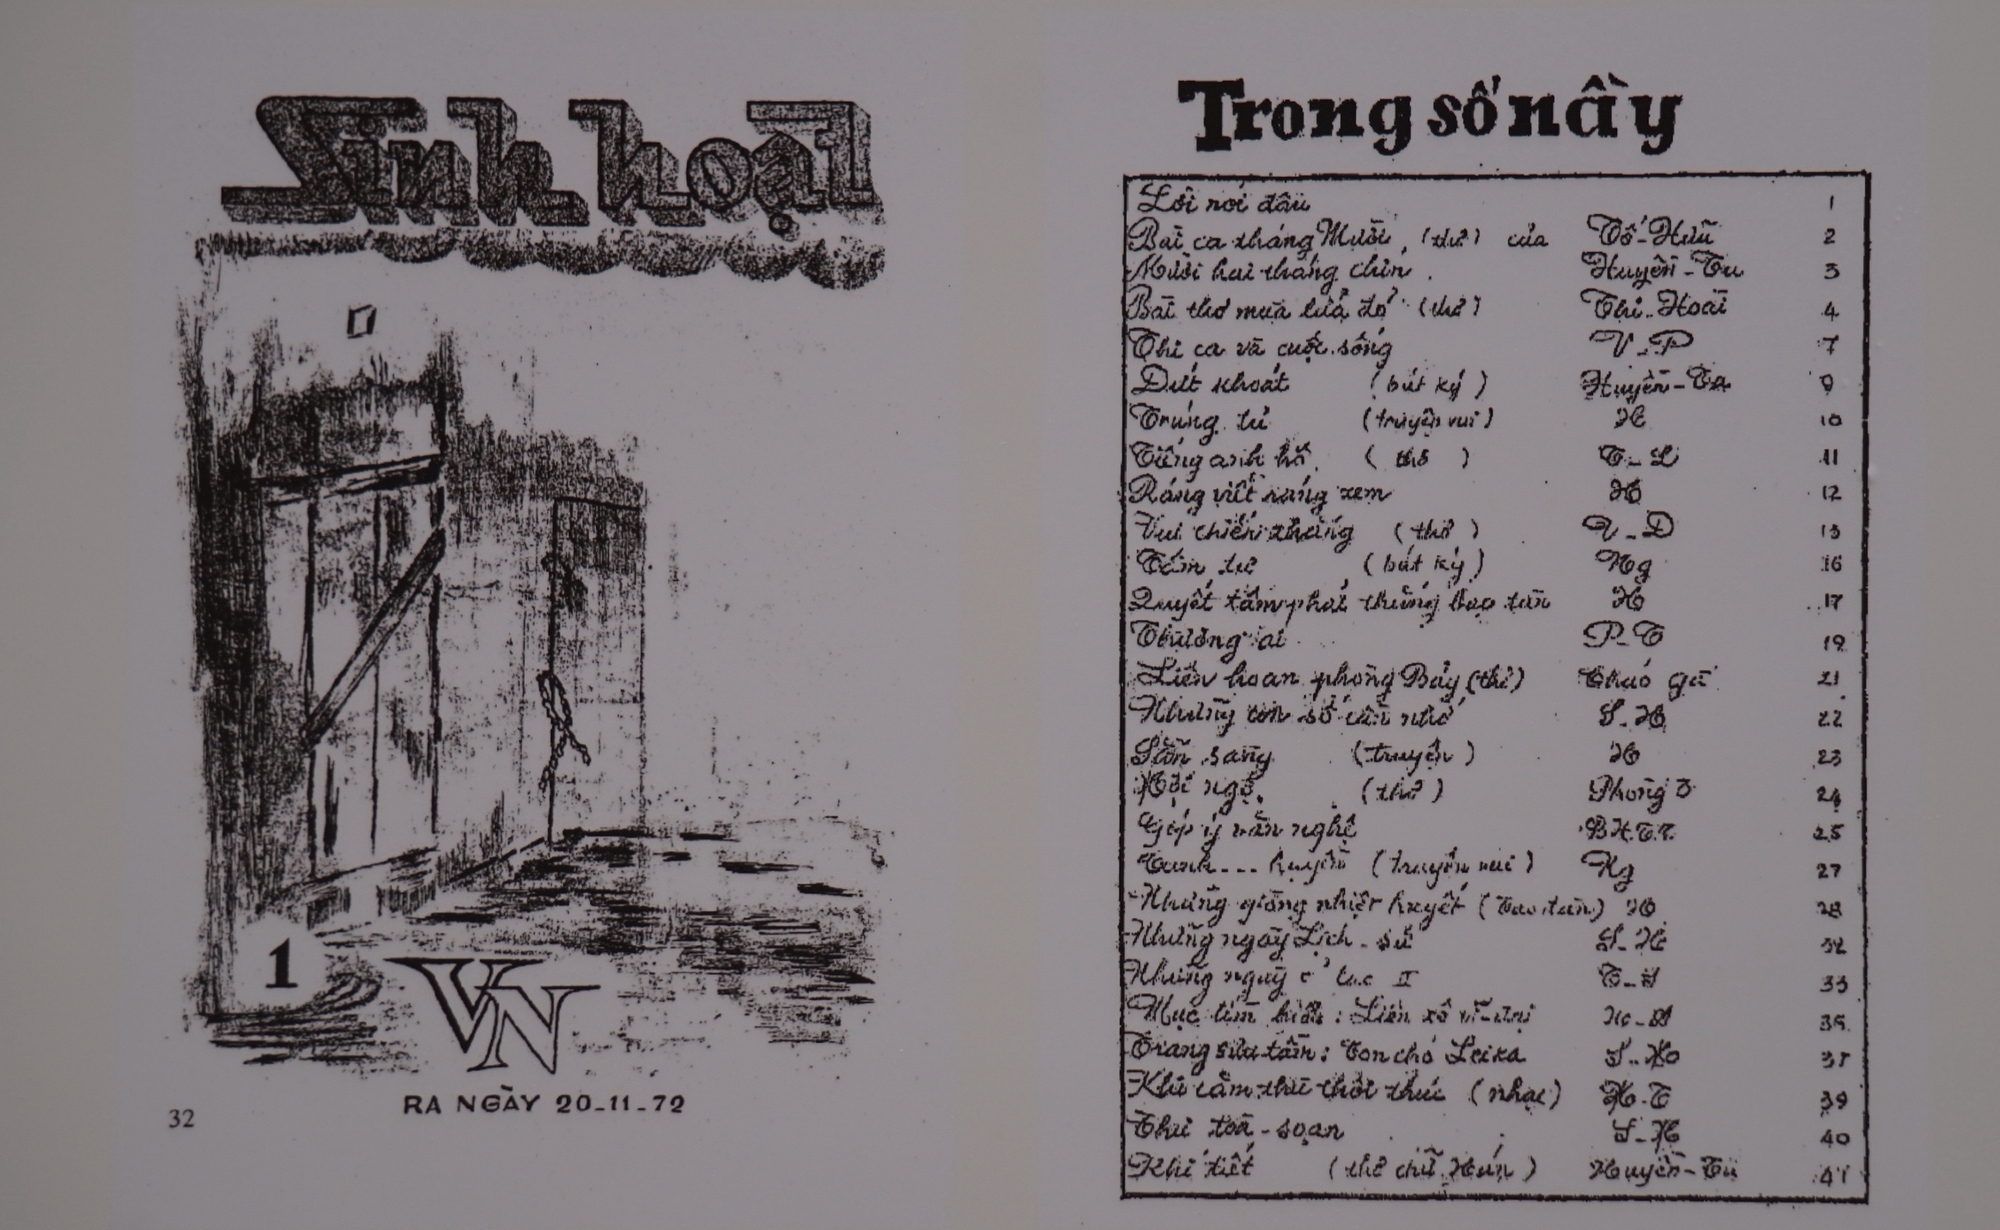 Sinh hoạt
1
VN
RA NGÀY 20-11-72
32
Trong số nầy
Lời nói đầu 1
Bài ca tháng Mười (thơ) của Tố-Hữu 2
Mười hai tháng chín Huyền-Tu 3
Bài thơ mùa lúa đỏ (thơ) Thi-Hoài 4
Thi ca và cuộc sống V-P 7
Dứt khoát (bút ký) Huyền-Tu 9
Trứng tử (truyện vui) H 10
Tiếng anh hô (thơ) T-L 11
Ráng viết ráng xem H 12
Vui chiến thắng (thơ) V-D 13
Tâm tư (bút ký) Ng 16
Quyết tâm phải thắng bạo tàn H 17
Thương ai P-T 19
Liên hoan phòng Bảy (thơ) Cháo gà 21
Những con số cần nhớ S-H 22
Sẵn sàng (truyện) H 23
Hội ngộ (thơ) Phòng 3 24
Góp ý văn nghệ B.H.T.T. 25
huyền (truyện vui) Kg 27
Những giòng nhiệt huyết (Tao đàn) H 28
Những ngày Lịch-sử S-H 32
Những ngày ở lao II T-S 33
Mục tìm hiểu: Liên xô vĩ-đại H-S 35
Trang sưu tầm: Con chó Leika S-Ho 37
Khi căm thù thôi thúc (nhạc) H-T 39
Thư toà-soạn S-H 40
Khí tiết (thơ chữ Hán) Huyền-Tu 41